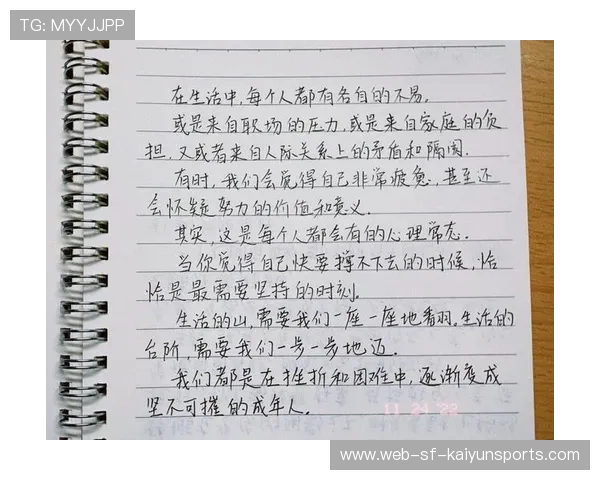 TG: MYYJJPP
在生活中,每个人都有各自的不易。
或是来自职场的压力,或是来自家庭的负
担,又或者来自人际关系上的矛盾和隔阂.
有时,我们会觉得自己非常疲惫,甚至还
会怀疑努力的价值和意义.
其实,这是每个人都会有的心理常态.
当你觉得自己快要撑不下去的时候,恰
恰是最需要坚持的时刻.
生活的山,需要我们一座一座地翻.生活的
台阶,需要我们一步一步地迈.
我们都是在挫折和困难中,逐渐变成
坚不可摧的成年人.
www-web-sf-kaiyunsports.com